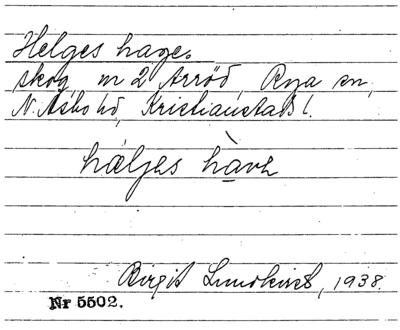 Helges hage.
skog, m 2 Arröd, Rya sn,
N. Åsbo hd, Kristianstads l.
hæljes hàvɛ
Birgit Lundkvist, 1938.
Nr 5502.